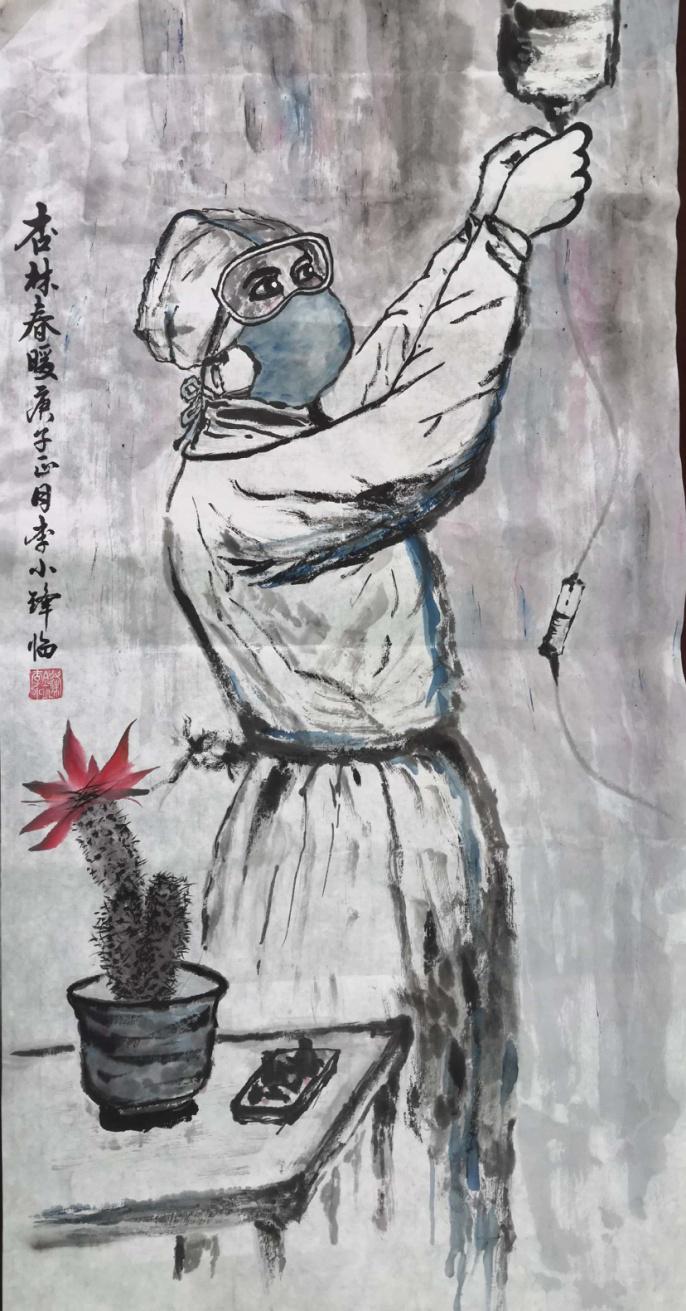 杏林春暖庚子正月李小锋临